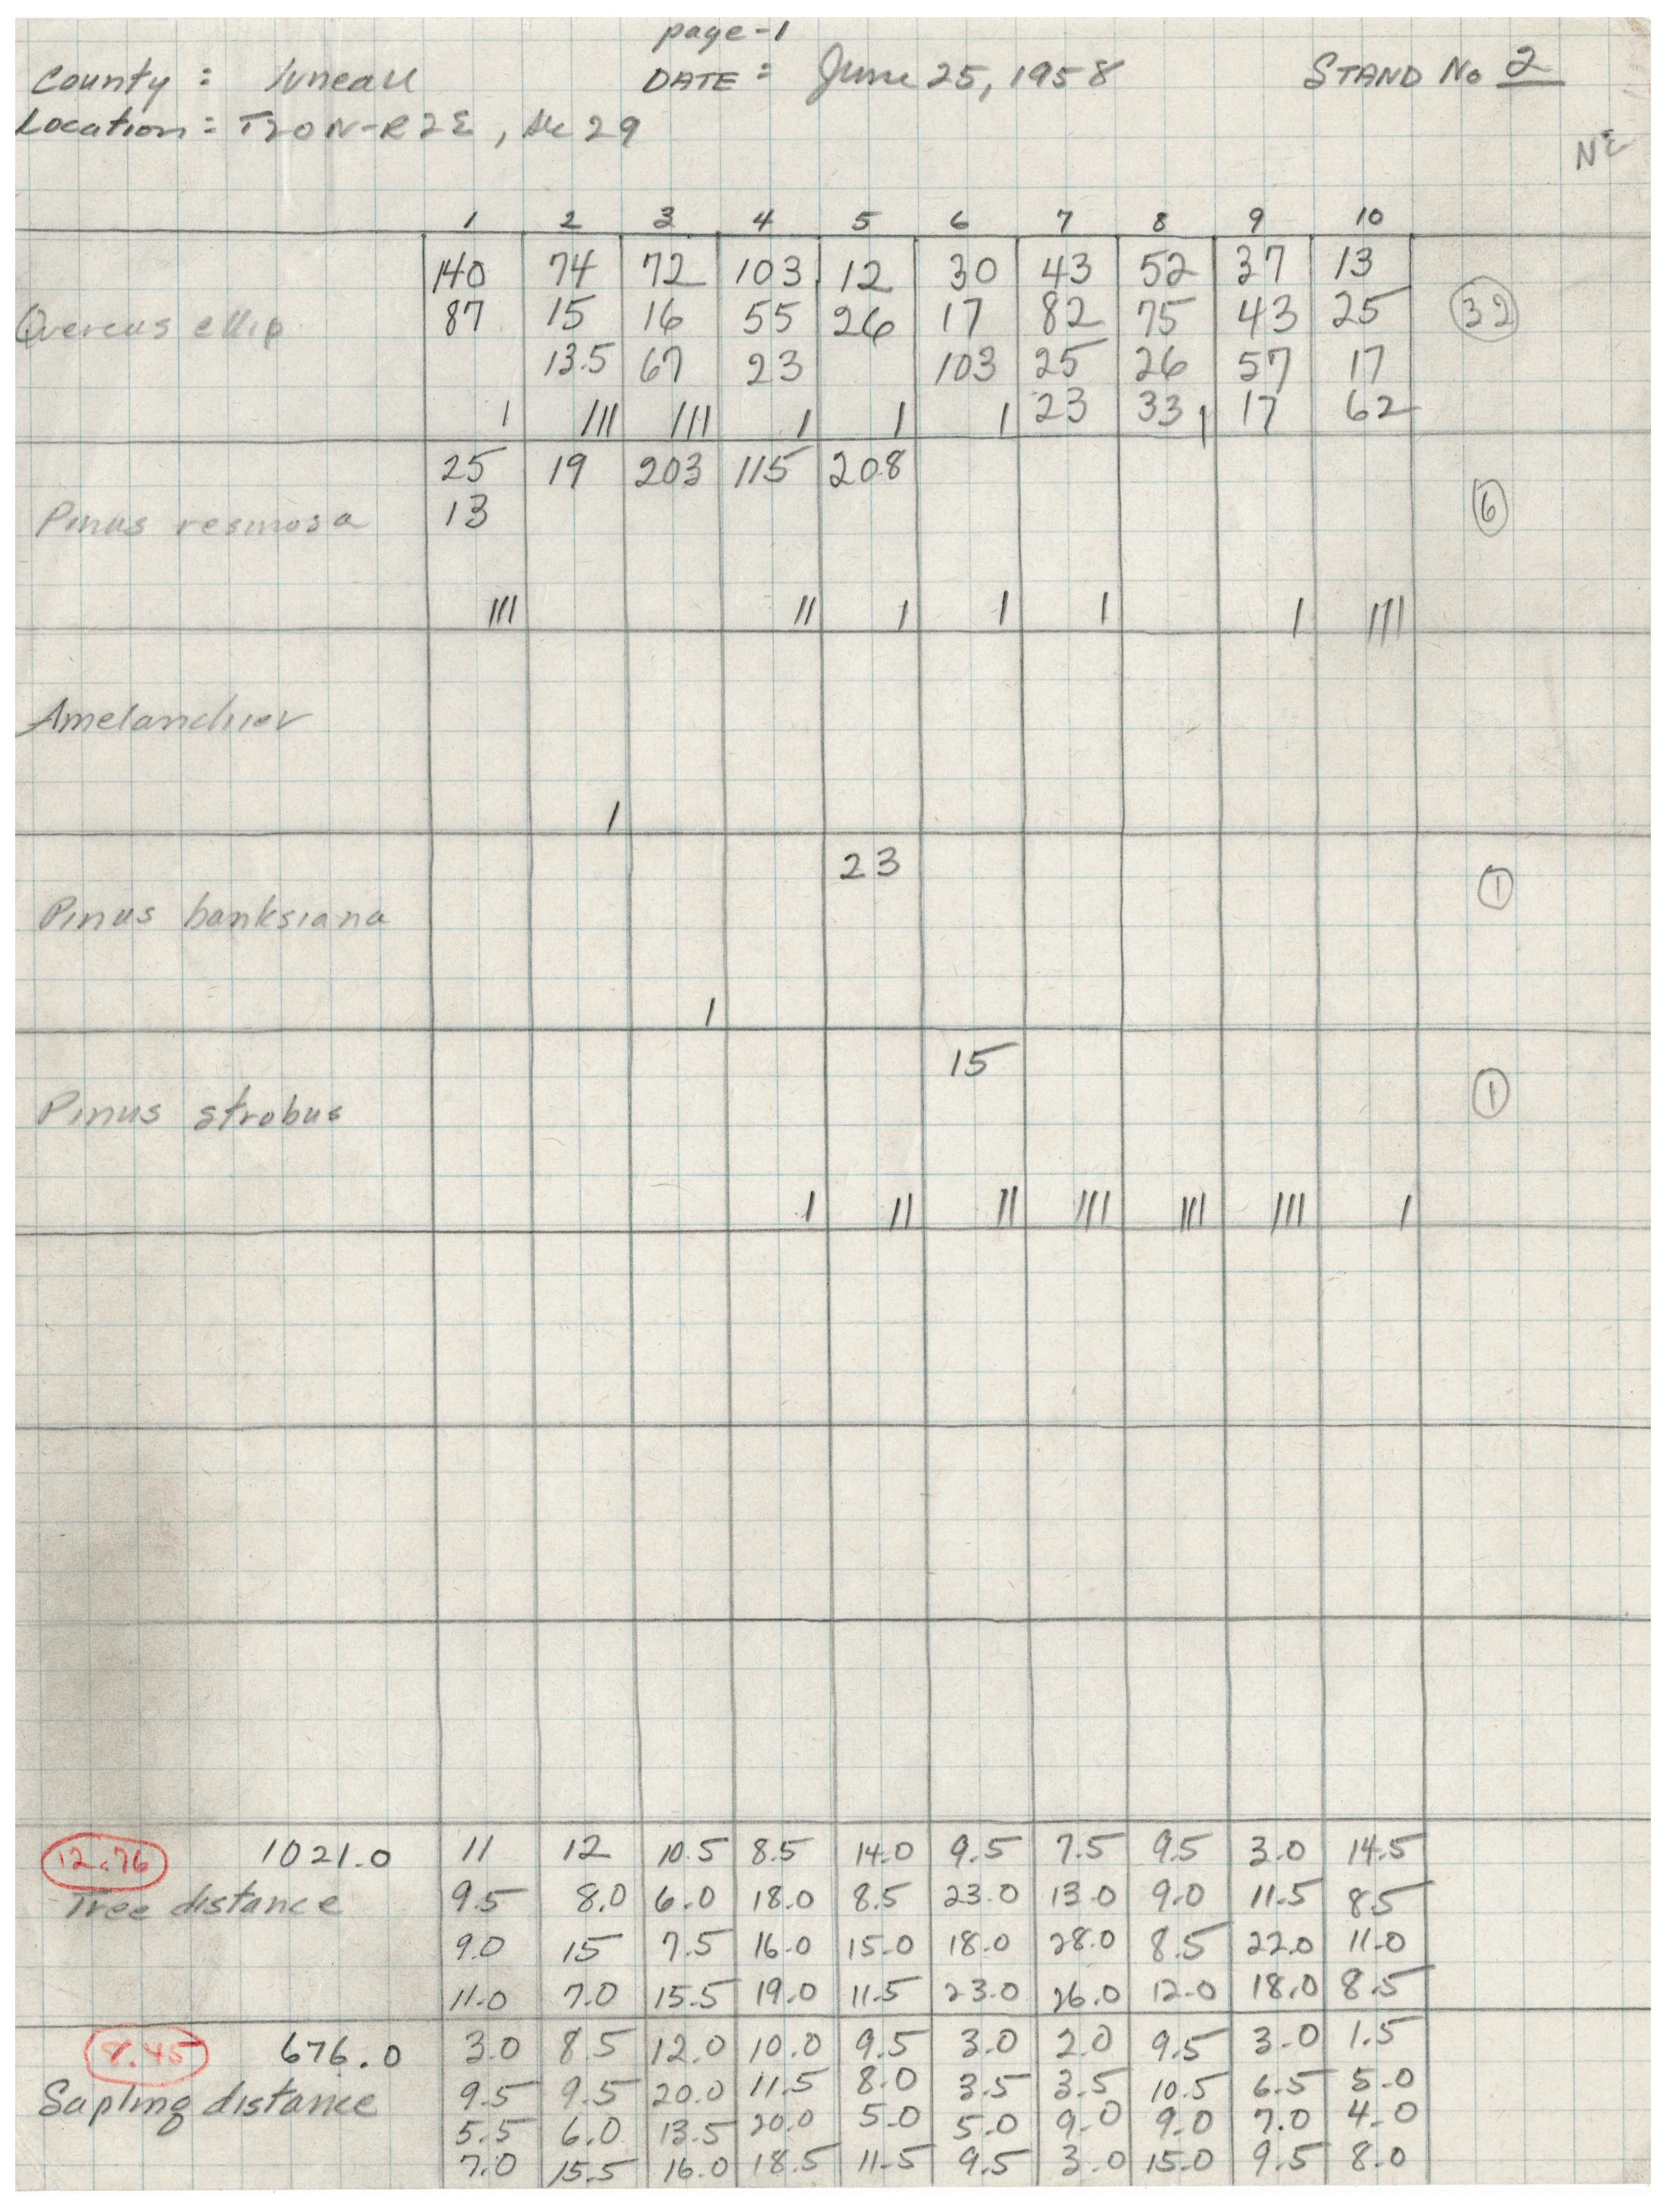 page-1
County: Juneau DATE: June 25, 1958 STAND No 2
Location: T20N-R2E, Sec 29
NE
1 2 3 4 5 6 7 8 9 10
140 74 72 103 12 30 43 52 37 13
Quercus ellip 87 15 16 55 26 17 82 75 43 25 32
13.5 67 23 103 25 26 57 17
I III III I I I 23 33 I 17 62
25 19 203 115 208
Pinus resinosa 13 6
III II I I I I III
Amelanchier
I
23 1
Pinus banksiana
I
15
Pinus strobus 1
I II II III III III I
12.76 1021.0 11 12 10.5 8.5 14.0 9.5 7.5 9.5 3.0 14.5
Tree distance 9.5 8.0 6.0 18.0 8.5 23.0 13.0 9.0 11.5 8.5
9.0 15 7.5 16.0 15.0 18.0 28.0 8.5 22.0 11.0
11.0 7.0 15.5 19.0 11.5 23.0 26.0 12.0 18.0 8.5
8.45 676.0 3.0 8.5 12.0 10.0 9.5 3.0 2.0 9.5 3.0 1.5
Sapling distance 9.5 9.5 20.0 11.5 8.0 3.5 3.5 10.5 6.5 5.0
5.5 6.0 13.5 20.0 5.0 5.0 9.0 9.0 7.0 4.0
7.0 15.5 16.0 18.5 11.5 9.5 3.0 15.0 9.5 8.0